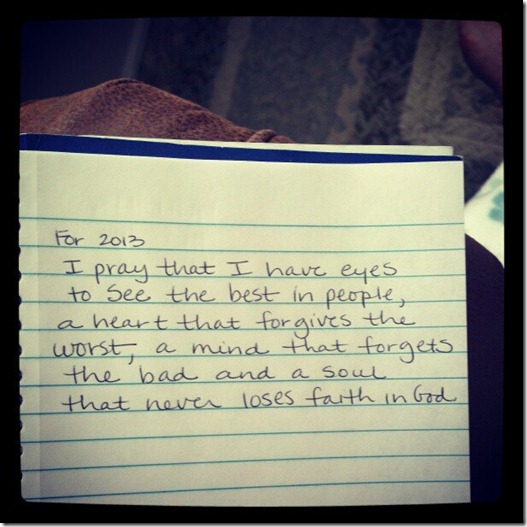 For 2013
I pray that I have eyes
to see the best in people,
a heart that forgives the
worst, a mind that forgets
the bad and a soul
that never loses faith in God